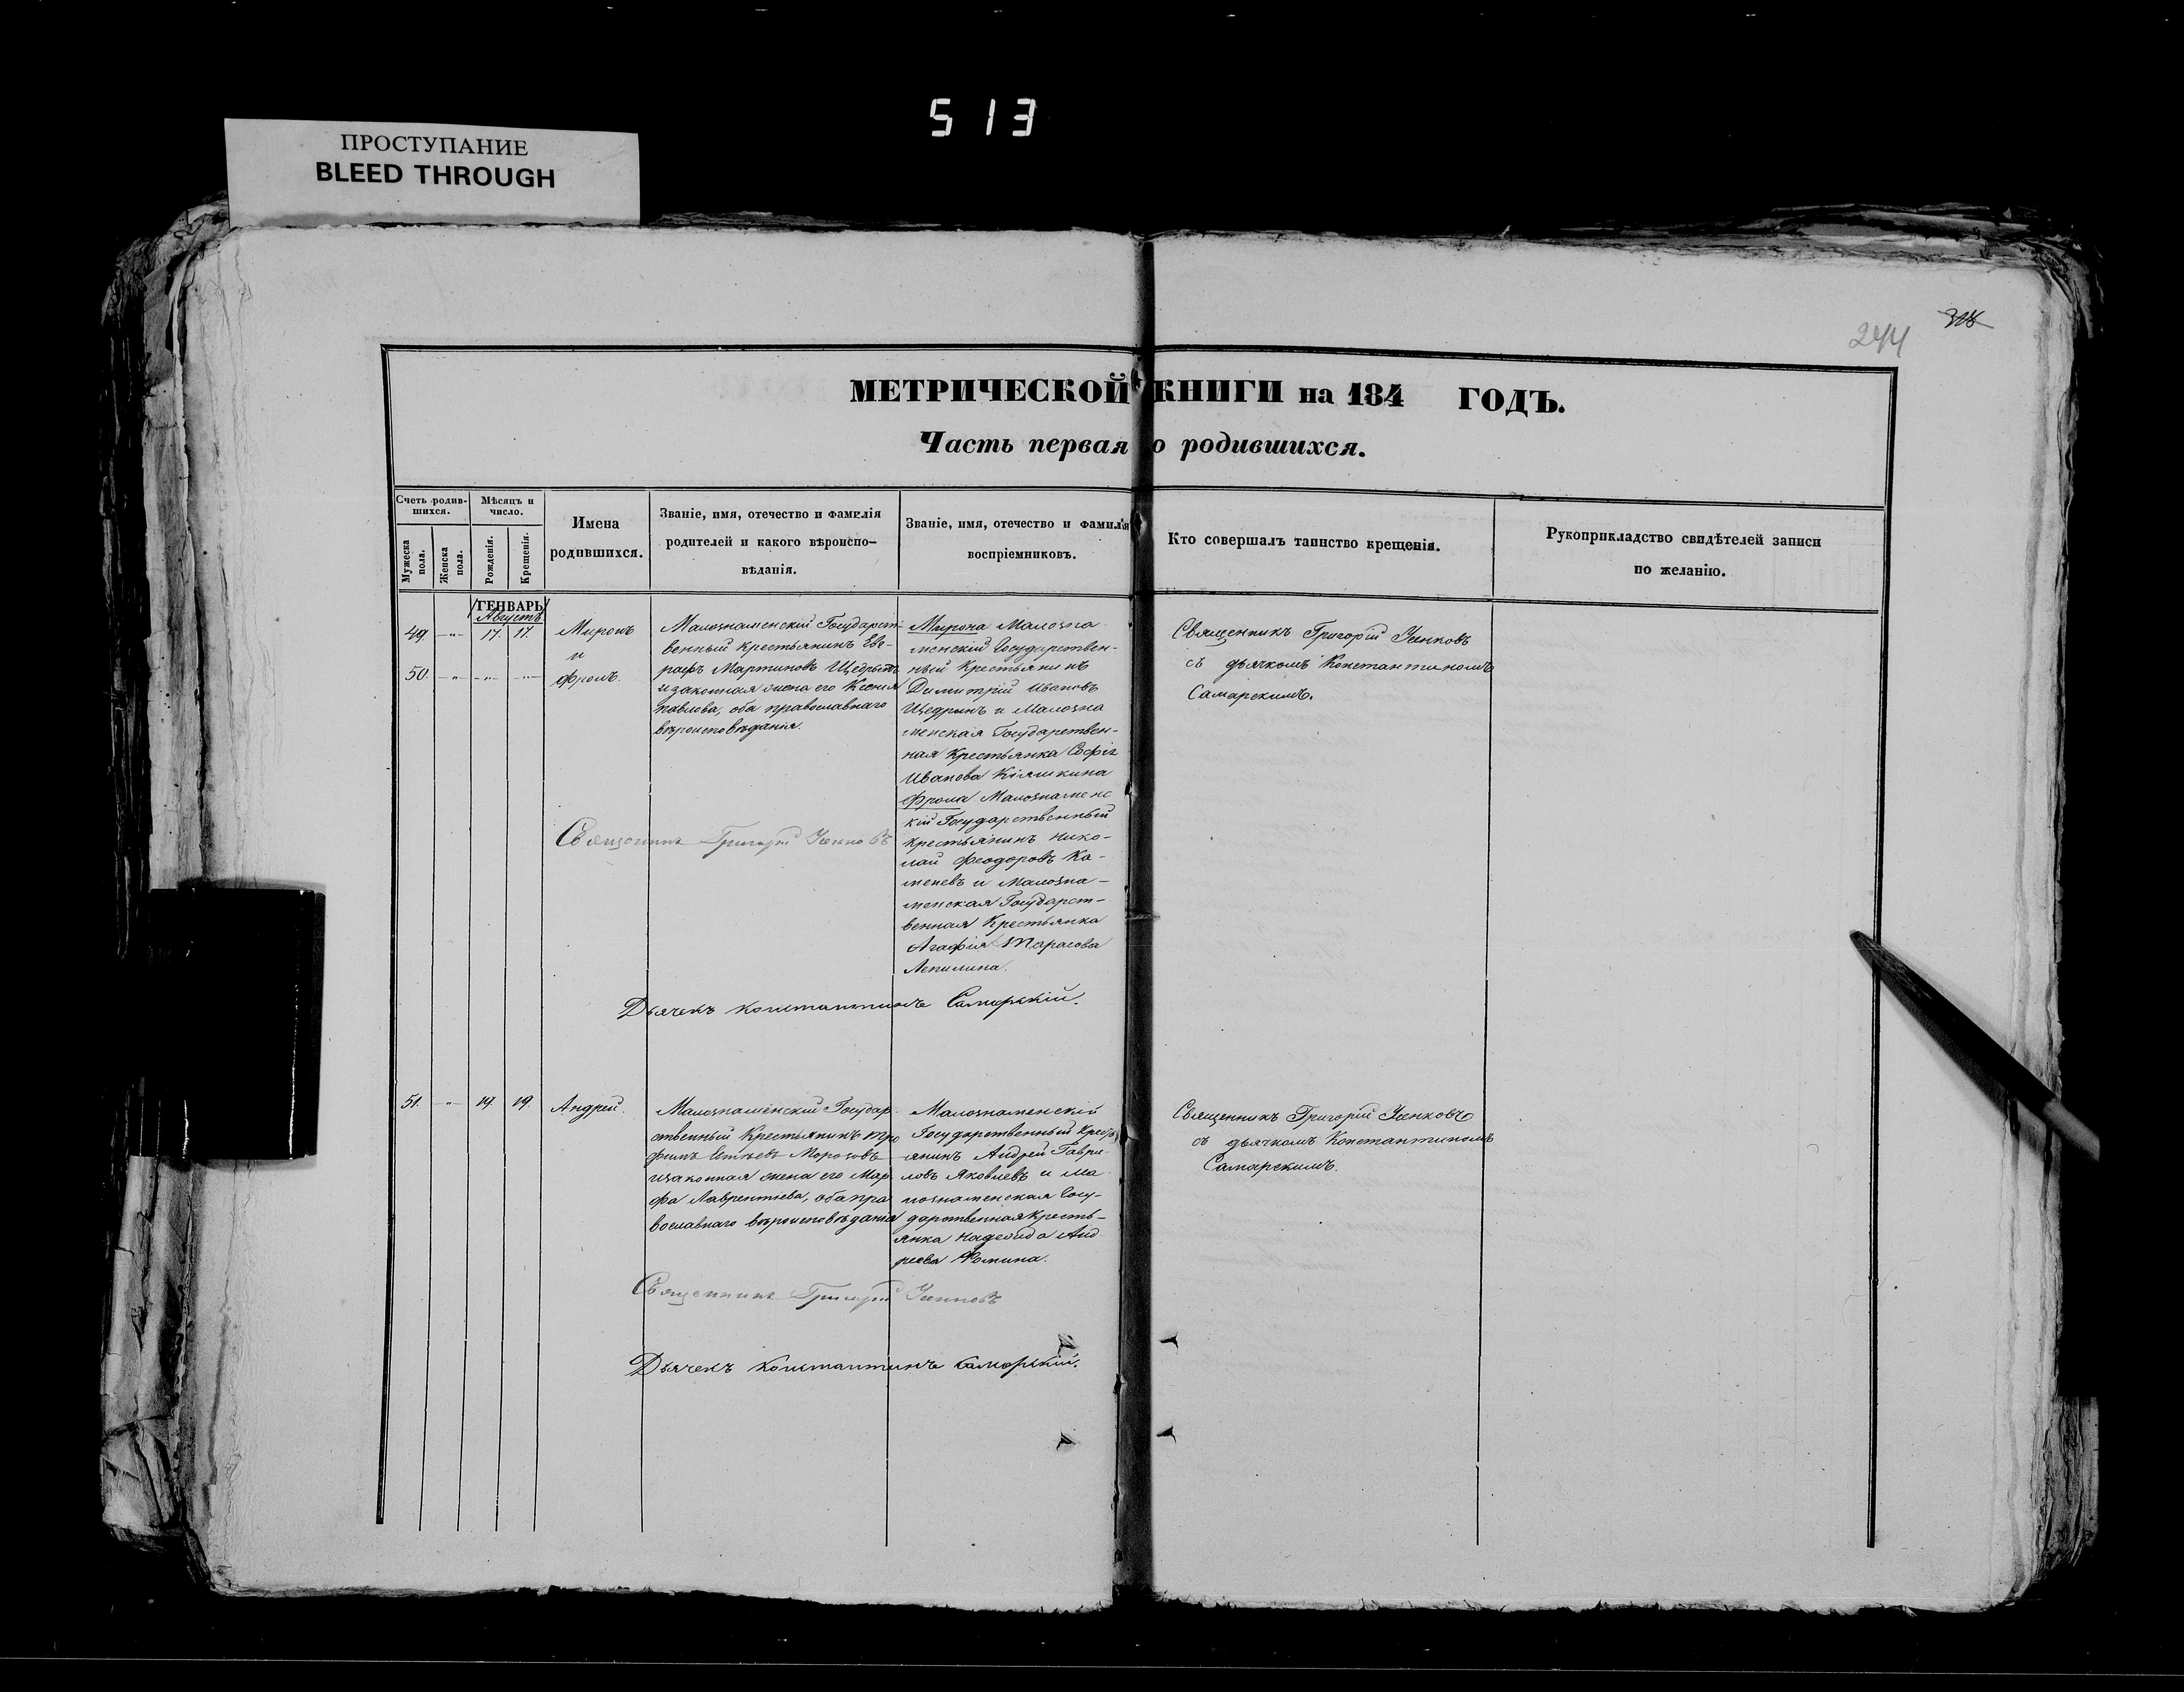 513
ПРОСТУПАНИЕ
BLEED THROUGH
244
МЕТРИЧЕСКОЙ КНИГИ на 184 ГОДЪ.
Часть первая о родившихся.
Счетъ родив-
шихся.
Мужеска пола.
Женска пола.
Мѣсяцъ и
число.
Рожденія.
Крещенія.
Имена
родившихся.
Званіе, имя, отечество и фамилія
родителей и какого вѣроиспо-
вѣданія.
Званіе, имя, отечество и фамилія
воспріемниковъ.
Кто совершалъ таинство крещенія.
Рукоприкладство свидѣтелей записи
по желанію.
ГЕНВАРЬ
Августъ
49. -"- 17. 17.
50. -"- -"- -"-
Миронъ
и
Фролъ.
Малознаменскій Государст-
венный Крестьянинъ Ев-
рафъ Мартиновъ
и законная жена его Ксенія
Павлова, оба православнаго
вѣроисповѣданія.
Мирона Малозна
менскій Государствен-
ный Крестьянинъ
Димитрій Ивановъ
Щедринъ и Малозна
менская Государствен-
ная Крестьянка Софія
Иванова Кіяшкина
Фрола Малознаменс
кій Государственный
Крестьянинъ Нико-
лай Феодоровъ Ка-
меневъ и Малозна-
менская Государст-
венная Крестьянка
Агафія Тарасова
Лепилина.
Священникъ Григорій
съ дьячкомъ Константиномъ
Самарскимъ.
Священникъ Григорій
Дьячекъ Константинъ Самарскій.
51. -"- 19. 19.
Андрей.
Малознаменскій Государ-
ственный Крестьянинъ Тро
фимъ Морозовъ
и законная жена его Мар
фа Лаврентіева, оба пра
вославнаго вѣроисповѣданія
Малознаменскій
Государственный Кресть
янинъ Андрей Гаври-
ловъ Яковлевъ и Ма
лознаменская Госу-
дарственная Кресть-
янка Надежда Анд
реева Фомина.
Священникъ Григорій
съ дьячкомъ Константиномъ
Самарскимъ.
Священникъ Григорій
Дьячекъ Константинъ Самарскій.